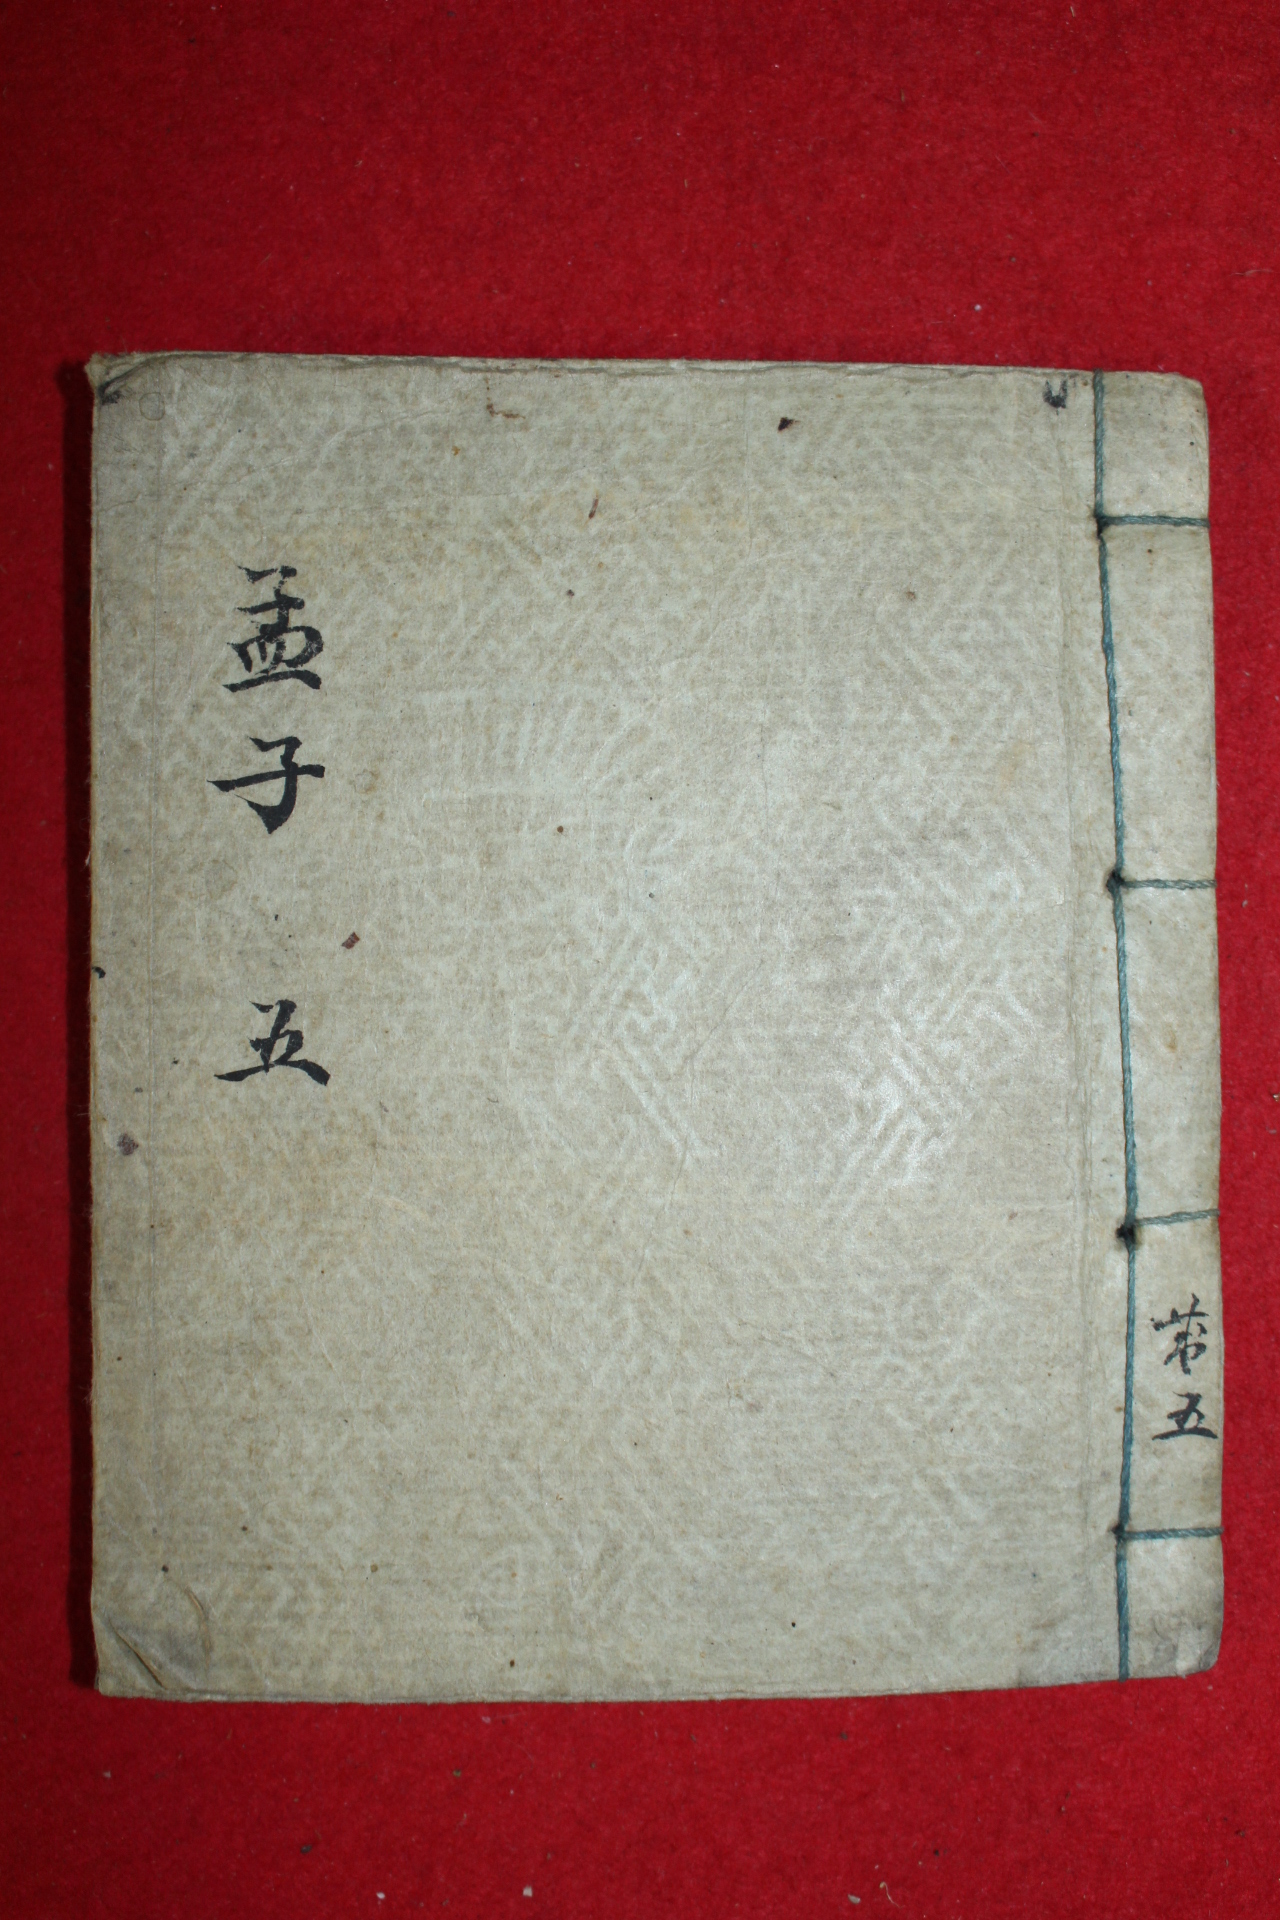 孟子 五
苐五